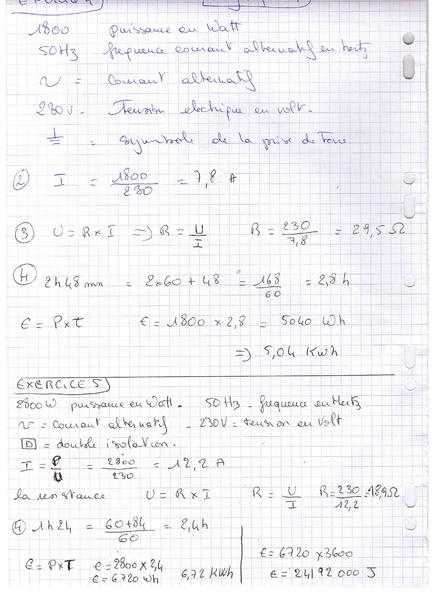 1800 puissance en Watt
50Hz frequence courant alternatif en hertz
~ = Courant alternatif
230v. Tension electrique en volt.
⏚ = symbole de la prise de Terre
② I = 1800/230 = 7,8 A
③ U = R x I => R = U/I R = 230/7,8 = 29,5 Ω
④ 2h48 mn = 2x60 + 48 = 168/60 = 2,8 h
E = P x T E = 1800 x 2,8 = 5040 Wh
=> 5,04 KWh
EXERCICE 5
2800W puissance en Watt - 50Hz - frequence en Hertz
~ = Courant alternatif - 230V = tension en volt
= double isolation.
I = P/U = 2800/230 = 12,2 A
la resistance U = R x I R = U/I R = 230/12,2 = 18,9Ω
④ 1h24 = 60+84/60 = 2,4h
E = P x T E = 2800 x 2,4
E = 6720 Wh 6,72 KWh
E = 6720 x 3600
E = 24192000 J